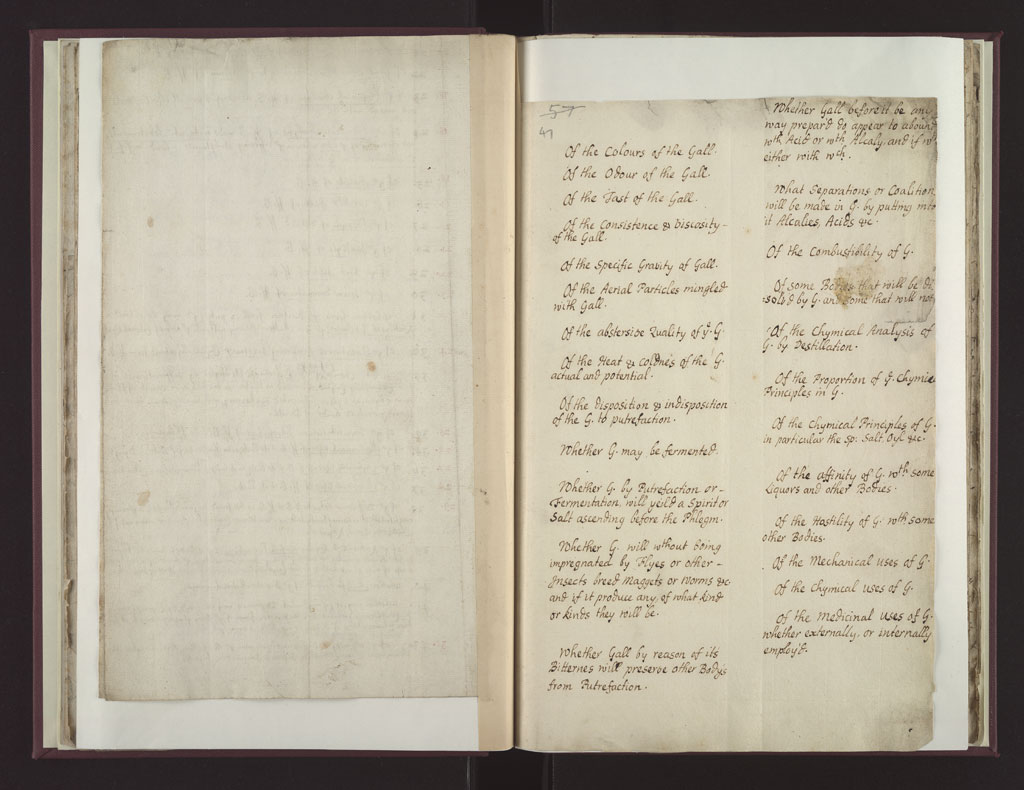 57
47
Of the Colours of the Gall.
Of the Odour of the Gall.
Of the Tast of the Gall.
Of the Consistence & Viscosity-
of the Gall.
Of the Specific Gravity of Gall.
Of the Aerial Particles mingled
with Gall.
Of the abstersive Quality of yᵉ. G.
Of the Heat & coldnes of the G.
actual and potential.
Of the disposition & indisposition
of the G. to putrefaction.
Whether G. may be fermented.
Whether G. by Putrefaction or-
Fermentation will yeild a Spirit or
Salt ascending before the Phlegm.
Whether G. will wthout being
impregnated by Flyes or other-
Insects breed Maggets or Worms &c.
and if it produce any, of what kind
or kinds they will be.
Whether Gall by reason of its
Bitternes will preserve other Bodys
from Putrefaction.
Whether Gall before it be any
way prepard do appear to abound
wth Acid or wth Alcaly, and if wth
either with wch.
What Separations or Coalition
will be made in G. by putting into
it Alcalies, Acids &c.
Of the Combustibility of G.
Of some Bodies that will be di
solvd by G. and some that will not
Of the Chymical Analysis of
G. by Destillation.
Of the Proportion of yᵉ. Chymic
Principles in G.
Of the Chymical Principles of G.
in particular the Sp. Salt, Oyl &c.
Of the affinity of G. wth some
Liquors and other Bodies.
Of the Hostility of G. wth some
other Bodies.
Of the Mechanical uses of G.
Of the Chymical uses of G.
Of the Medicinal uses of G.
whether externally, or internally
employ'd.